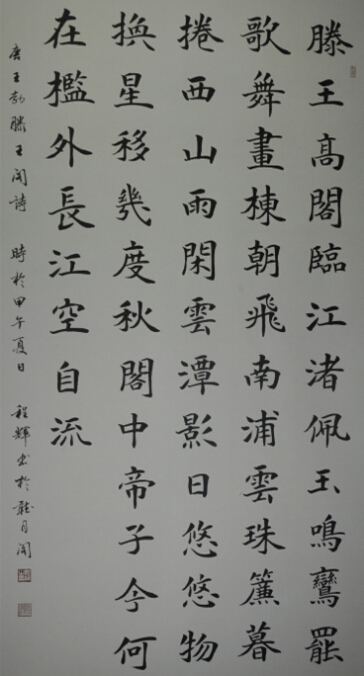 滕王高閣臨江渚佩玉鳴鸞罷
歌舞畫棟朝飛南浦雲珠簾暮
捲西山雨閑雲潭影日悠悠物
換星移幾度秋閣中帝子今何
在檻外長江空自流
唐王勃滕王閣詩 時於甲午夏日 程輝書於月閣